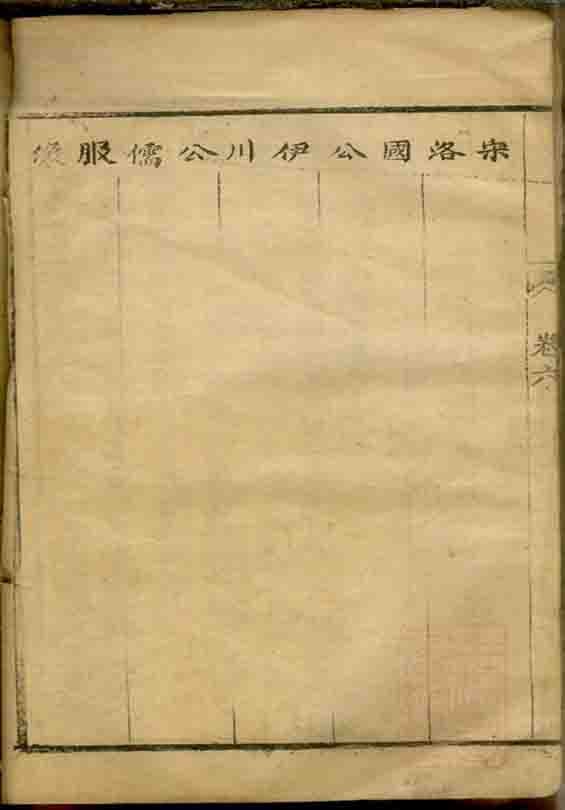 宋洛國公伊川公儒服像
卷六